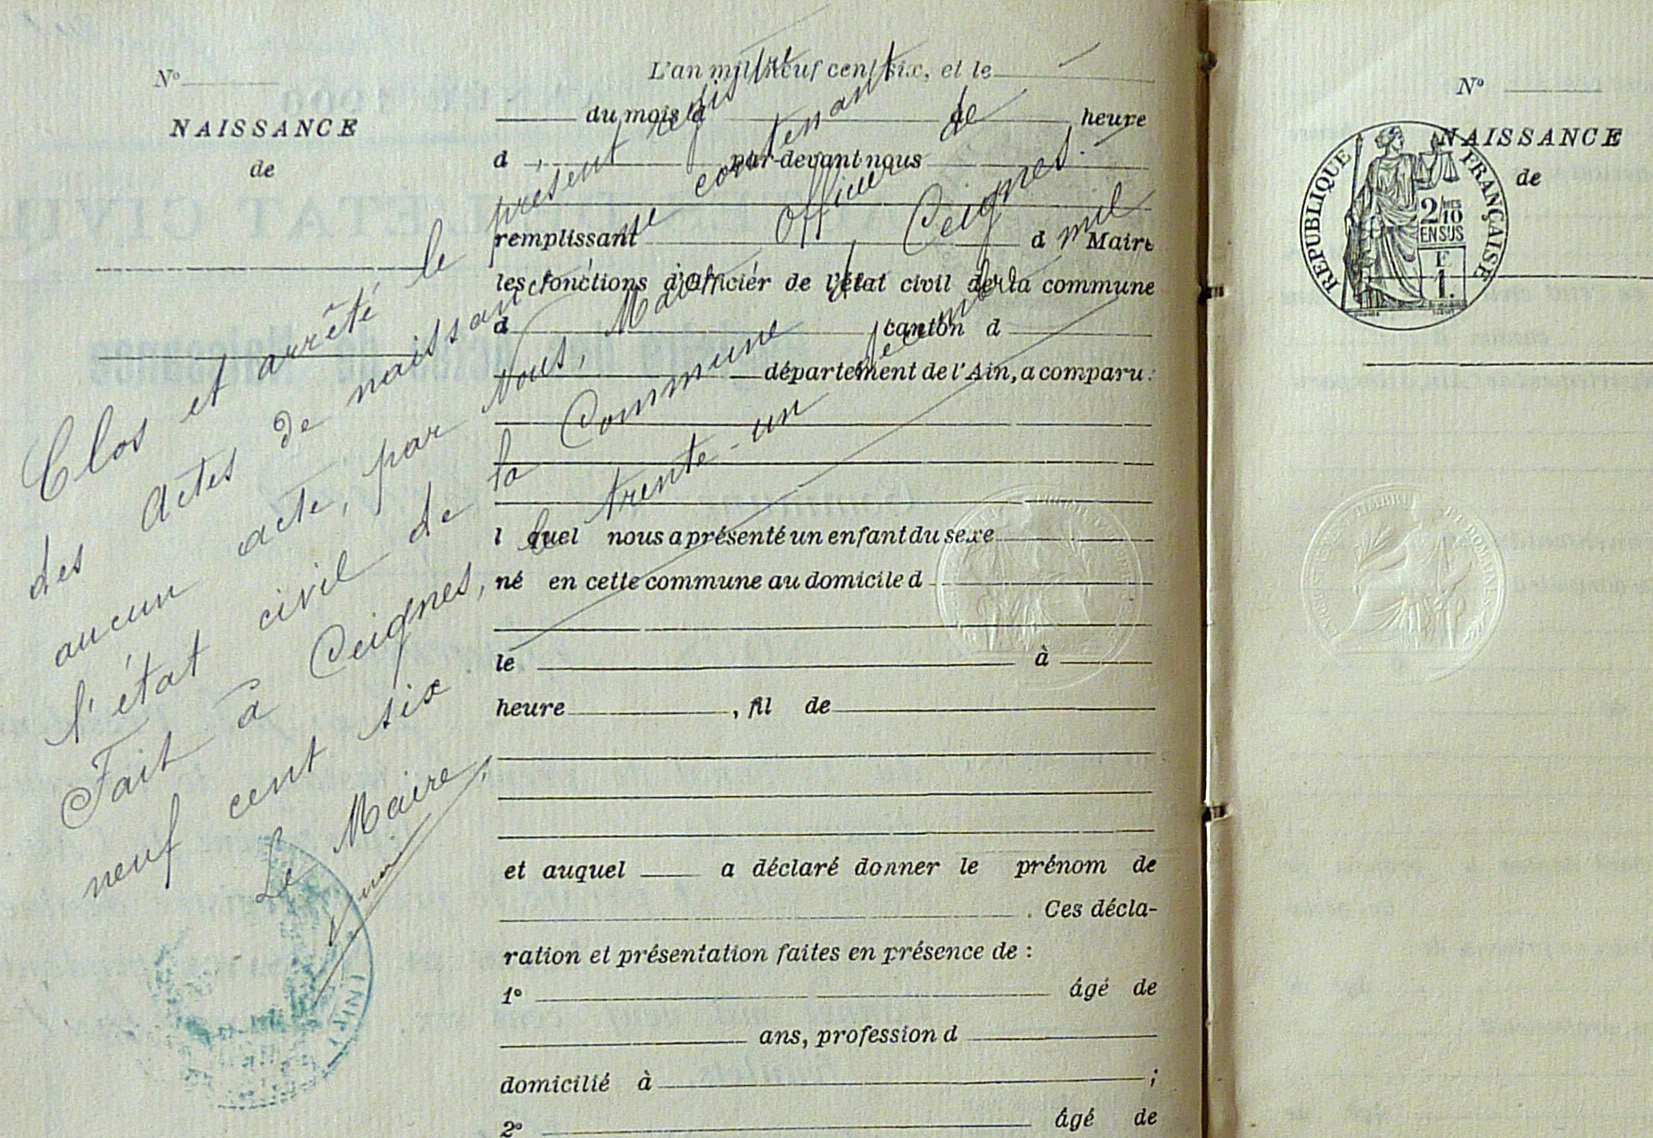 N°
NAISSANCE
de
L'an mil neuf cent six, et le
du mois d de heure
d par-devant nous
remplissant d Maire
les fonctions d'officier de l'état civil de la commune
d canton d
département de l'Ain, a comparu:
l quel nous a présenté un enfant du sexe
né en cette commune au domicile d
le à
heure , fil de
et auquel a déclaré donner le prénom de
. Ces décla-
ration et présentation faites en présence de :
1° âgé de
ans, profession d
domicilié à ;
2° âgé de
Clos et arrêté le présent registre
des actes de naissance ne contenant
aucun acte, par Nous, Maire Officier de
l'état civil de la Commune de Ceignes.
Fait à Ceignes, le trente-un décembre mil
neuf cent six
Le Maire,
N°
NAISSANCE
de
RÉPUBLIQUE FRANÇAISE
2/10
EN SUS
1.